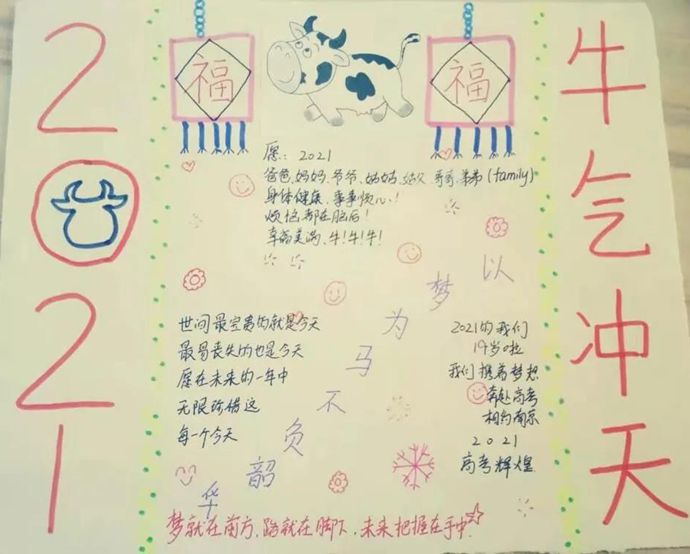 2021
牛气冲天
福
福
愿：2021
爸爸、妈妈、爷爷、奶奶、哥哥、弟弟(family)
身体健康、事事顺心！
烦恼都在脑后！
幸福美满、牛！牛！牛！
以梦为马不负韶华
世间最宝贵的就是今天
最易丧失的也是今天
愿在未来的一年中
无限珍惜这
每一个今天
2021的我们
19岁啦
我们携着梦想
奔赴高考
相约南京
2021
高考辉煌
梦就在前方，路就在脚下，未来把握在手中